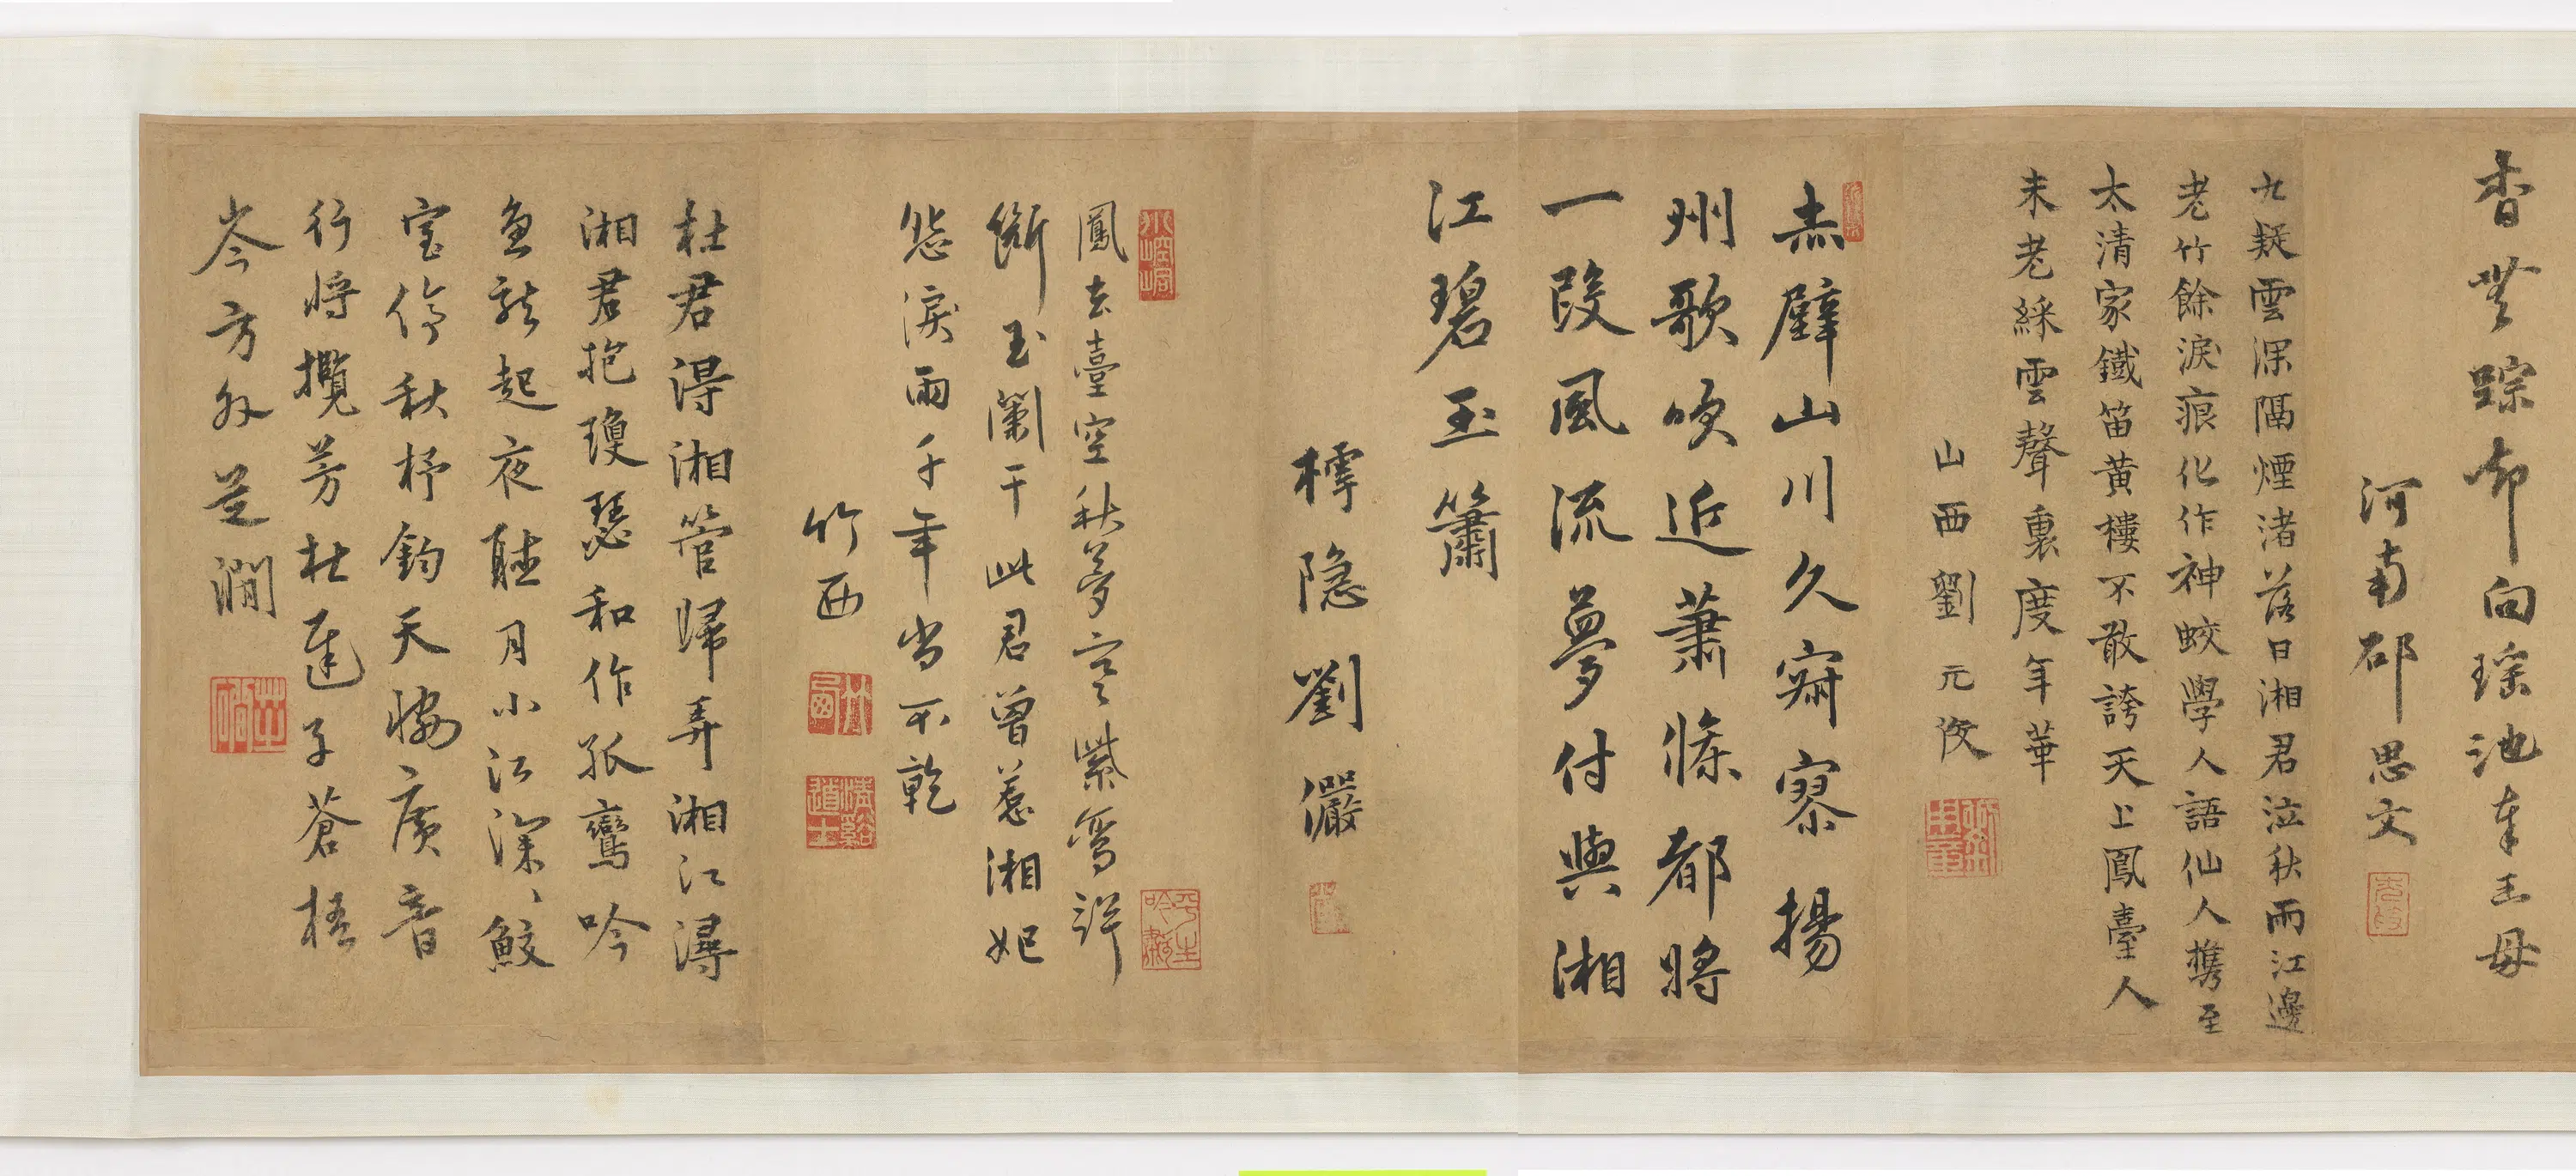 香無踪却向瑤池奉王母
河南邵思文
九疑雲深隔煙渚落日湘君泣秋雨江邊
老竹餘淚痕化作神蛟學人語仙人携至
太清家鐵笛黃樓不敢誇天上鳳臺人
未老綵雲聲裏度年華
山西劉元俊
赤壁山川久寂寥揚
州歌吹近蕭條都將
一段風流夢付與湘
江碧玉簫
樗隐劉儼
鳳去臺空秋夢寒紫鸞詳
斷玉闌干此君曾惹湘妃
愁淚雨千年尚不乾
竹西
竹西
清谿道士
平生吟嘯
杜君得湘管歸弄湘江潯
湘君抱瓊瑟和作孤鸞吟
魚龍起夜聽月小江深深鮫
室停秋杼鈞天愧廣音
行將攬芳杜遲子蒼梧
岑方外芝澗